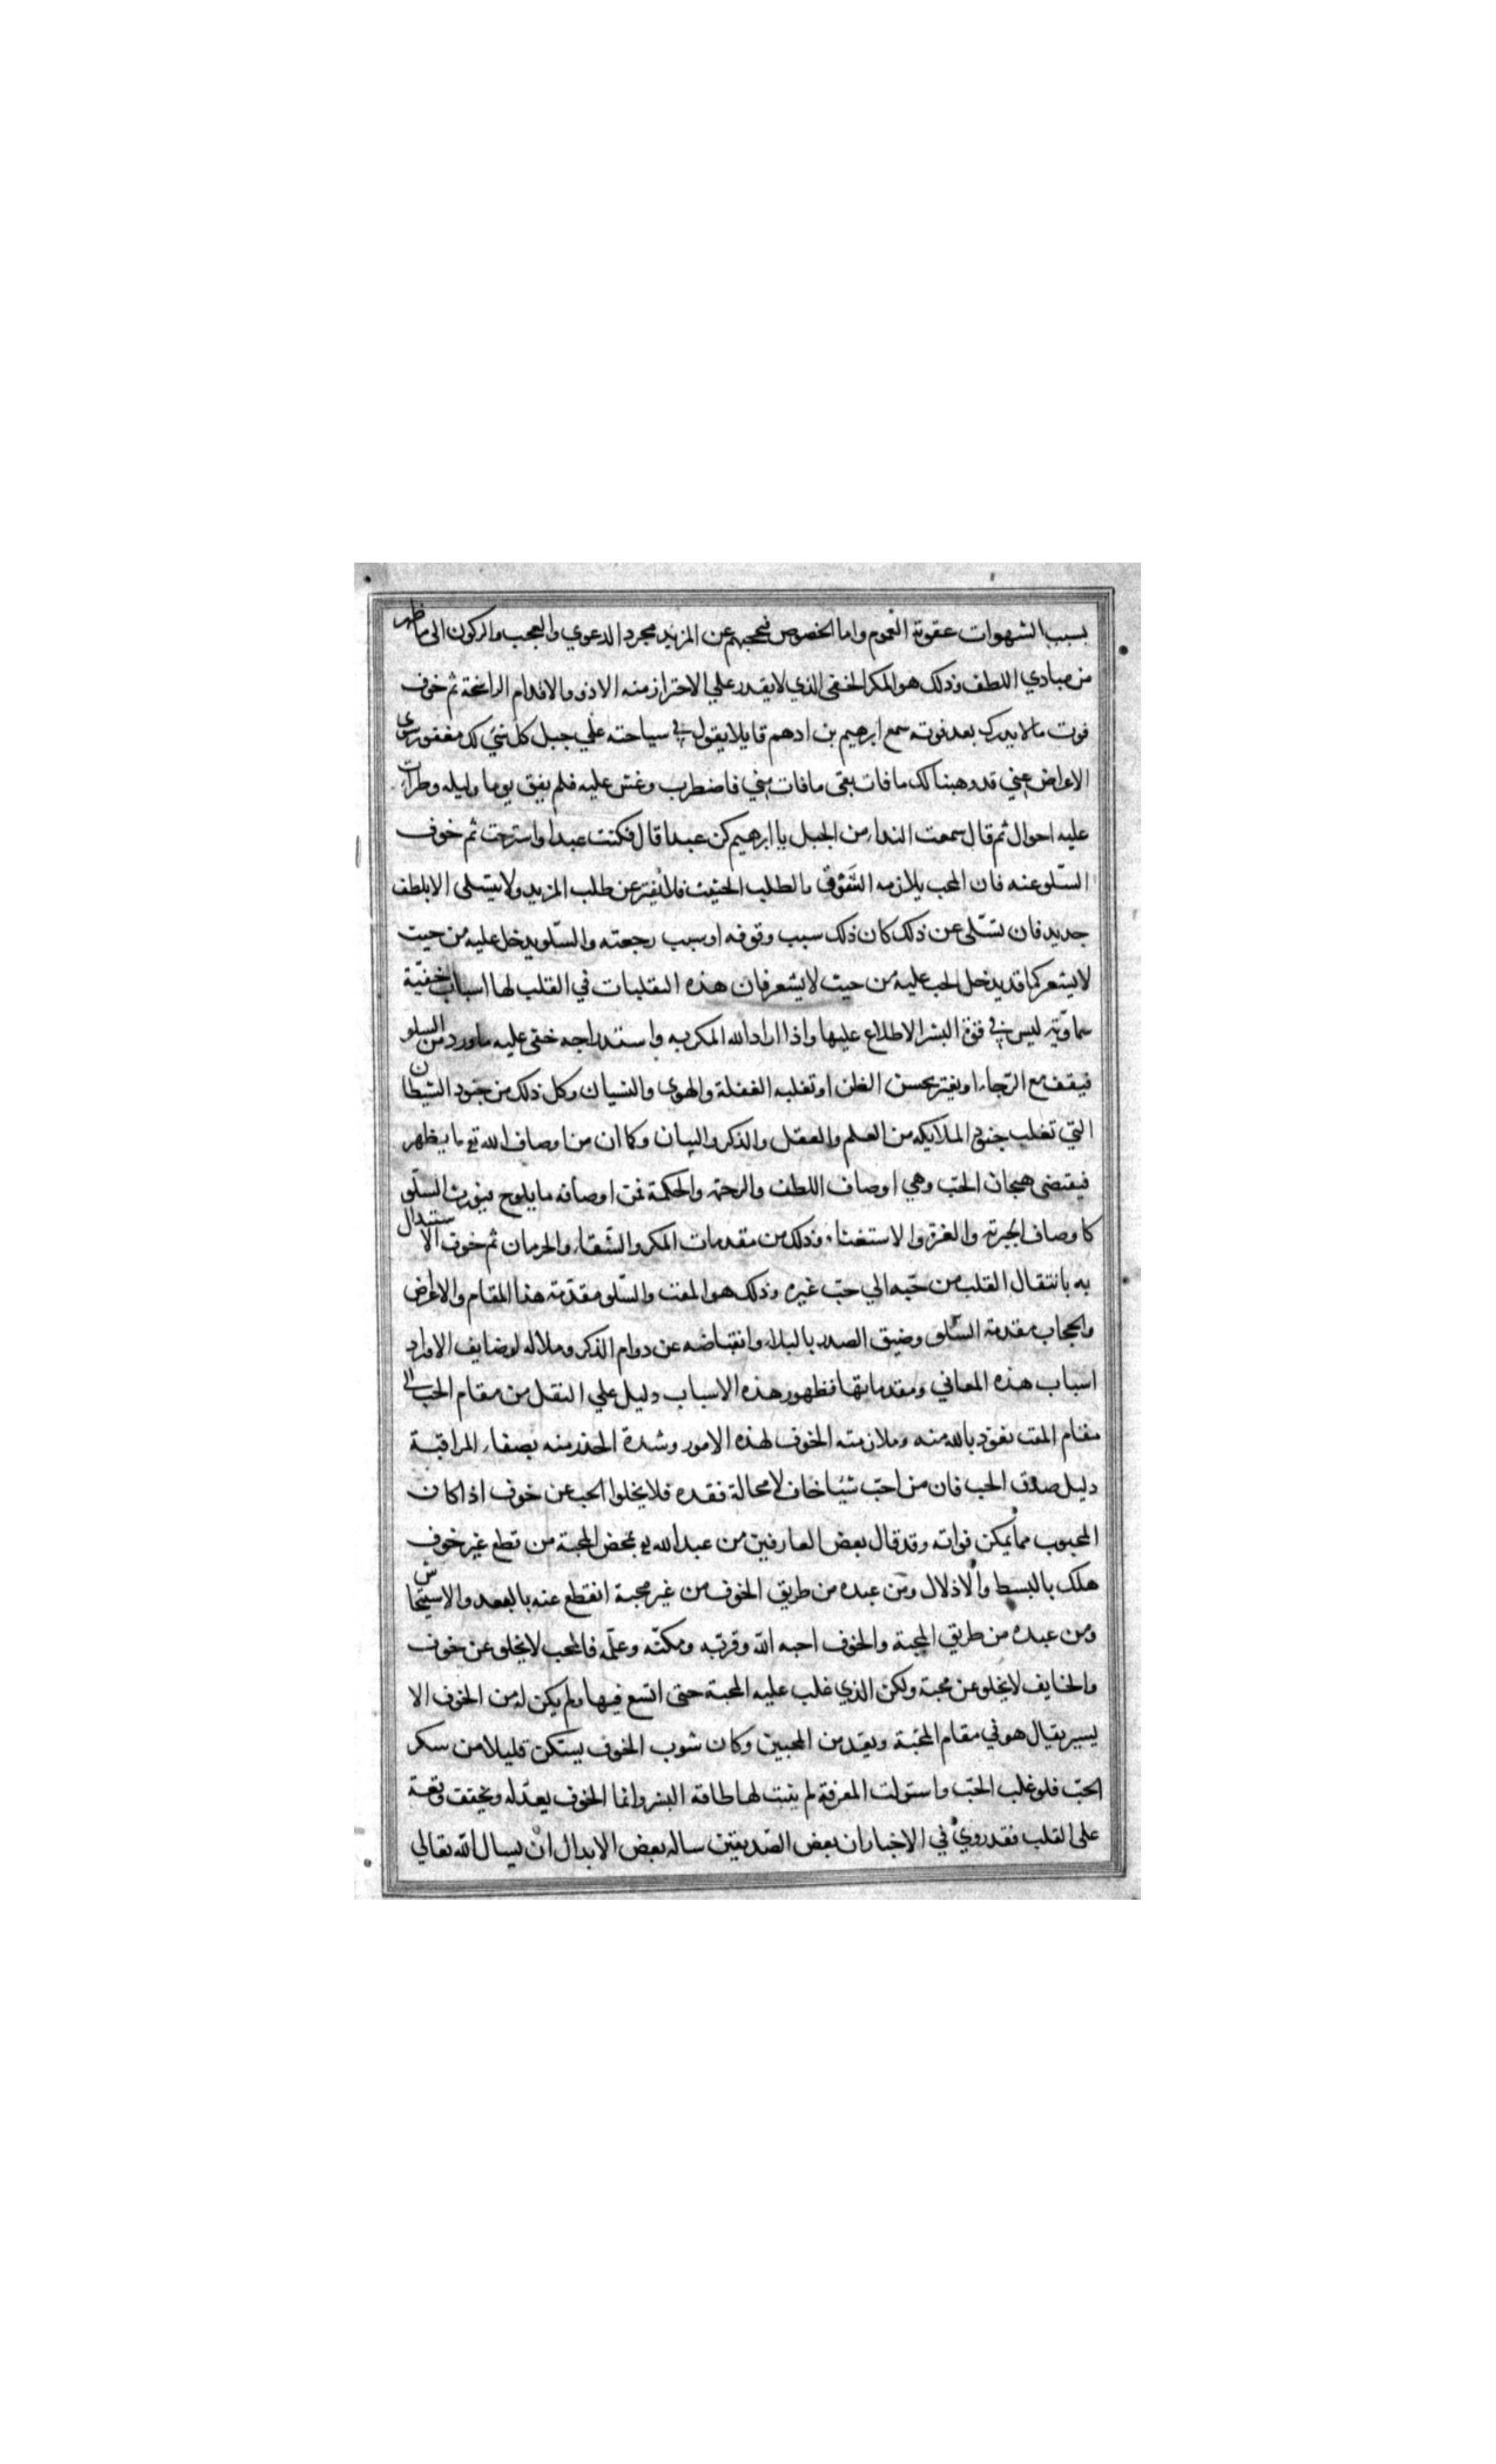 بسبب الشهوات عقوبة العموم واما الخصوص فيحجبهم عن المزيد مجرد الدعوي والعجب والركون الى ما ظهر
من مبادي اللطف وذلك هو المكر الخفى الذي لا يقدر علي الاحتراز منه الا ذو والاقدام الراسخة ثم خوف
فوت ما لا يدرك بعد فوته سمع ابرهيم بن ادهم قايلا يقول في سياحته علي جبل كل شئ لك مغفور سوى
الاعراض عني قد وهبنا لك ما فات بقى ما فات مني فاضطرب وغشى عليه فلم يفق يوما وليله وطرات
عليه احوال ثم قال سمعت الندا من الجبل يا ابرهيم كن عبدا قال فكنت عبدا واسترحت ثم خوف
السّلو عنه فان المحب يلازمه الشوق والطلب الحثيث فلا يفتر عن طلب المزيد ولا يتسلى الا بلطف
جديد فان تسّلى عن ذلك كان ذلك سبب وقوفه او سبب رجعته والسّلو يدخل عليه من حيث
لا يشعر كما قد يدخل الحب عليه من حيث لا يشعر فان هذه التقلبات في القلب لها اسباب خفيّة
سماويّة ليس في قوة البشر الاطلاع عليها واذا اراد الله المكر به واستدراجه خفى عليه ما ورد من السلو
فيقف مع الرّجاء او يغتر بحسن الظن او تغلبه الغفلة والهوى والنسيان وكل ذلك من جنود الشيطان
التي تغلب جنود الملايكه من العلم والعقل والذكر والبيان وكما ان من اوصاف الله تع ما يظهر
فيقتضى هيجان الحبّ وهي اوصاف اللطف والرحمة والحكمة فمن اوصافه ما يلوح فيورث السلّو
كاوصاف الجبرية والعزة والاستغناء وذلك من مقدمات المكر والشقاء والحرمان ثم خوف الاستبدال
به بانتقال القلب من حبّه الي حبّ غيره وذلك هو المقت والسّلو مقدّمة هذا المقام والاعراض
والحجاب مقدمة السّلو وضيق الصدر بالبلاء وانقباضه عن دوام الذكر وملاله لوضايف الاوراد
اسباب هذه المعاني ومقدماتها فظهور هذه الاسباب دليل علي النقل من مقام الحب الى
مقام المقت نعوذ بالله منه وملازمته الخوف لهذه الامور وشدة الحذر منه بصفاء المراقبة
دليل صدق الحب فان من احبّ شيئا خاف لا محالة فقده فلا يخلوا الحب عن خوف اذا كان
المحبوب مما يمكن فواته وقد قال بعض العارفين من عبد الله تع بمحض المحبة من قطع غير خوف
هلك بالبسط والاذلال ومن عبده من طريق الخوف من غير محبة انقطع عنه بالبعد والاستيحاش
ومن عبده من طريق المحبة والخوف احبه الله وقربه ومكنّه وعلّمه فالمحب لا يخلو عن خوف
والخايف لا يخلو عن محبة ولكن الذي غلب عليه المحبة حتى اتسع فيها ولم يكن له من الخوف الا
يسير يقال هو في مقام المحبّة ويعد من المحبين وكان شوب الخوف يستكن قليلا من سكر
الحبّ فلو غلب الحبّ واستولت المعرفة لم يثبت لها طاقة البشر وانما الخوف يعدّله ويخفف وقعه
على القلب فقد روي في الاخبار ان بعض الصّديقين ساله بعض الابدال ان يسال الله تعالي